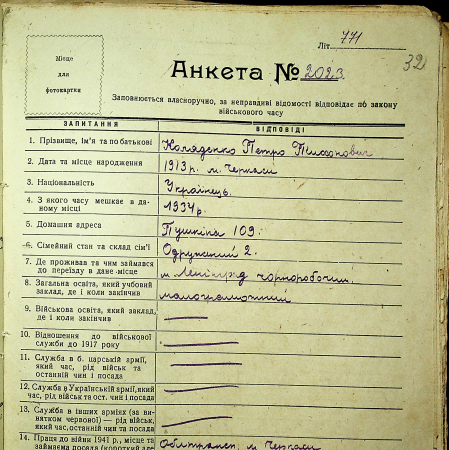 Літ. 771
32
Місце
для
фотокартки
Анкета № 2023
Заповнюється власноручно, за неправдиві відомості відповідає по закону
військового часу
ЗАПИТАННЯ ВІДПОВІДІ
1. Прізвище, ім'я та по батькові Коляденко Петро Пилипович
2. Дата та місце народження 1913 р. м. Черкаси
3. Національність Українець.
4. З якого часу мешкає в да-
ному місці 1934 р.
5. Домашня адреса Пушкіна 109.
6. Сімейний стан та склад сім'ї Одружений 2.
7. Де проживав та чим займався
до переїзду в дане місце м. Ленінград чорноробочим.
8. Загальна освіта, який учбовий
заклад, де і коли закінчив малограмотний
9. Військова освіта, який заклад,
де і коли закінчив
10. Відношення до військової
служби до 1917 року
11. Служба в б. царській армії,
який час, рід військ та
останній чин і посада
12. Служба в Українській армії, який
час, рід військ та ост. чин і посада
13. Служба в інших арміях (за ви-
нятком червоної) — рід військ,
який час, останній чин та посада
14. Праця до війни 1941 р., місце та
займаєма посада (короткий м. Черкаси